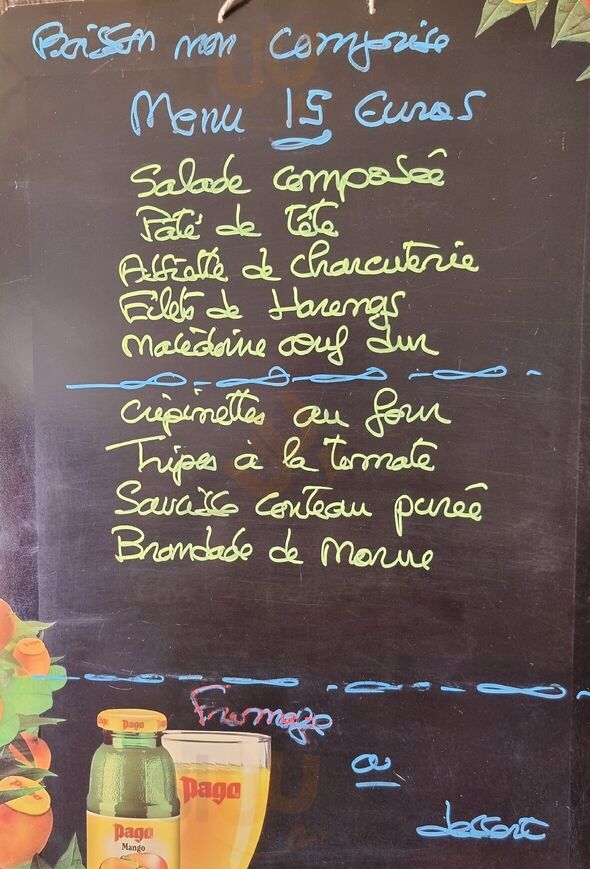 Boisson non comprise
Menu 15 Euros
Salade composée
Pâté de tête
Assiette de charcuterie
Filets de Harengs
Macédoine oeuf dur
Crépinettes au four
Tripes à la tomate
couteau purée
Brandade de Morue
Fromage
ou
dessert
pago
pago
pago
Mango